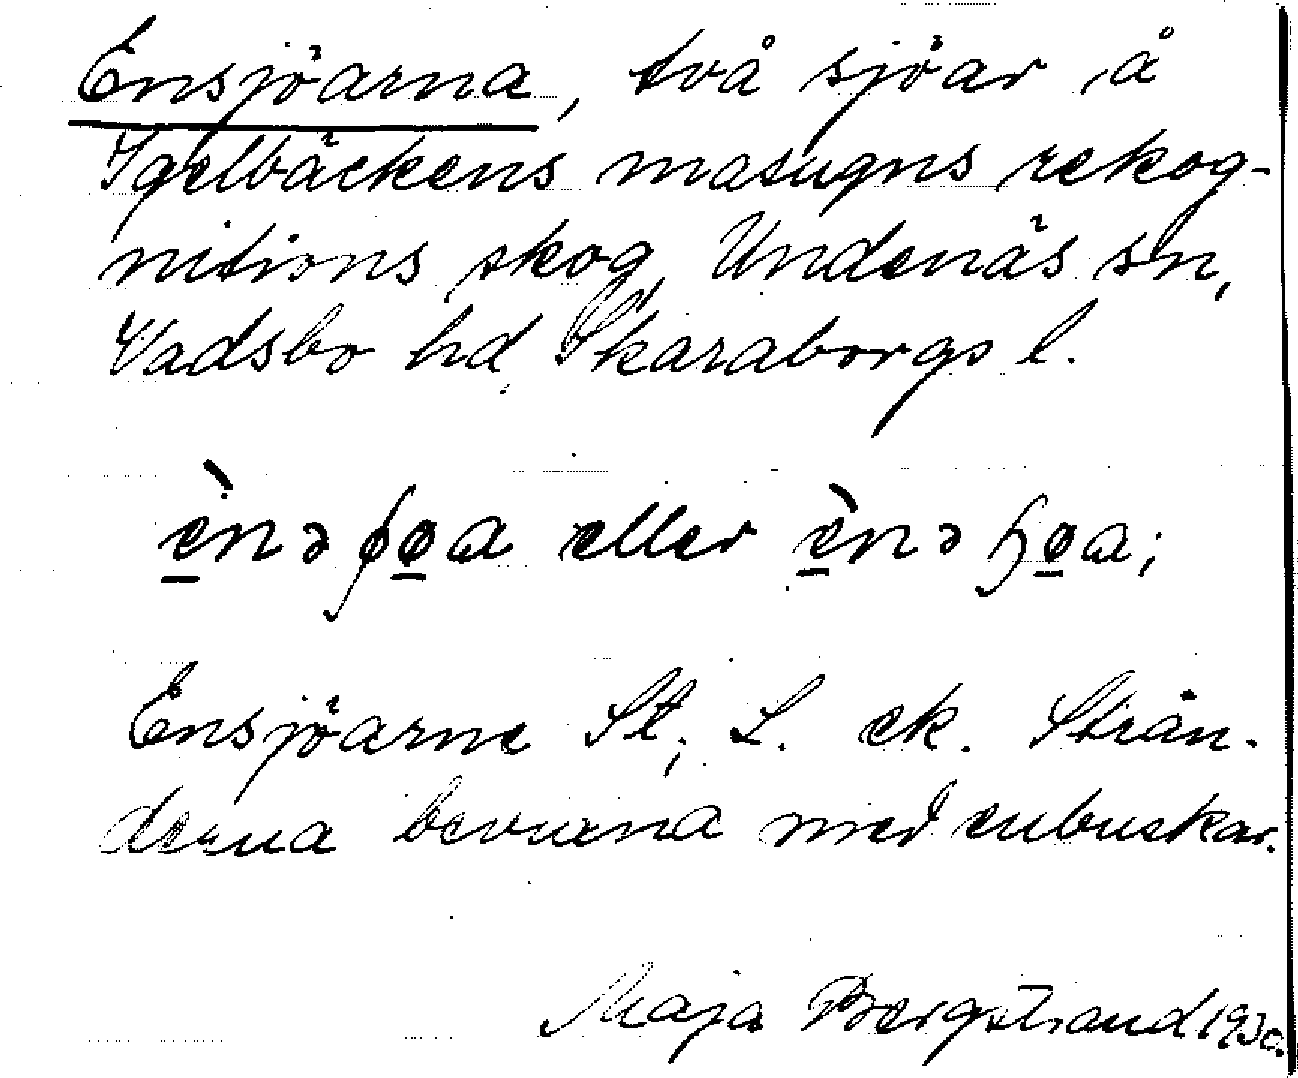 Ensjöarna, två sjöar å
Igelbäckens masugns rekog-
nitions skog, Undenäs sn,
Vadsbo hd, Skaraborgs l.
eller
Ensjöarne St, L. ek. Strän-
derna bevuxna med enbuskar.
Maja Bergstrand 1930.